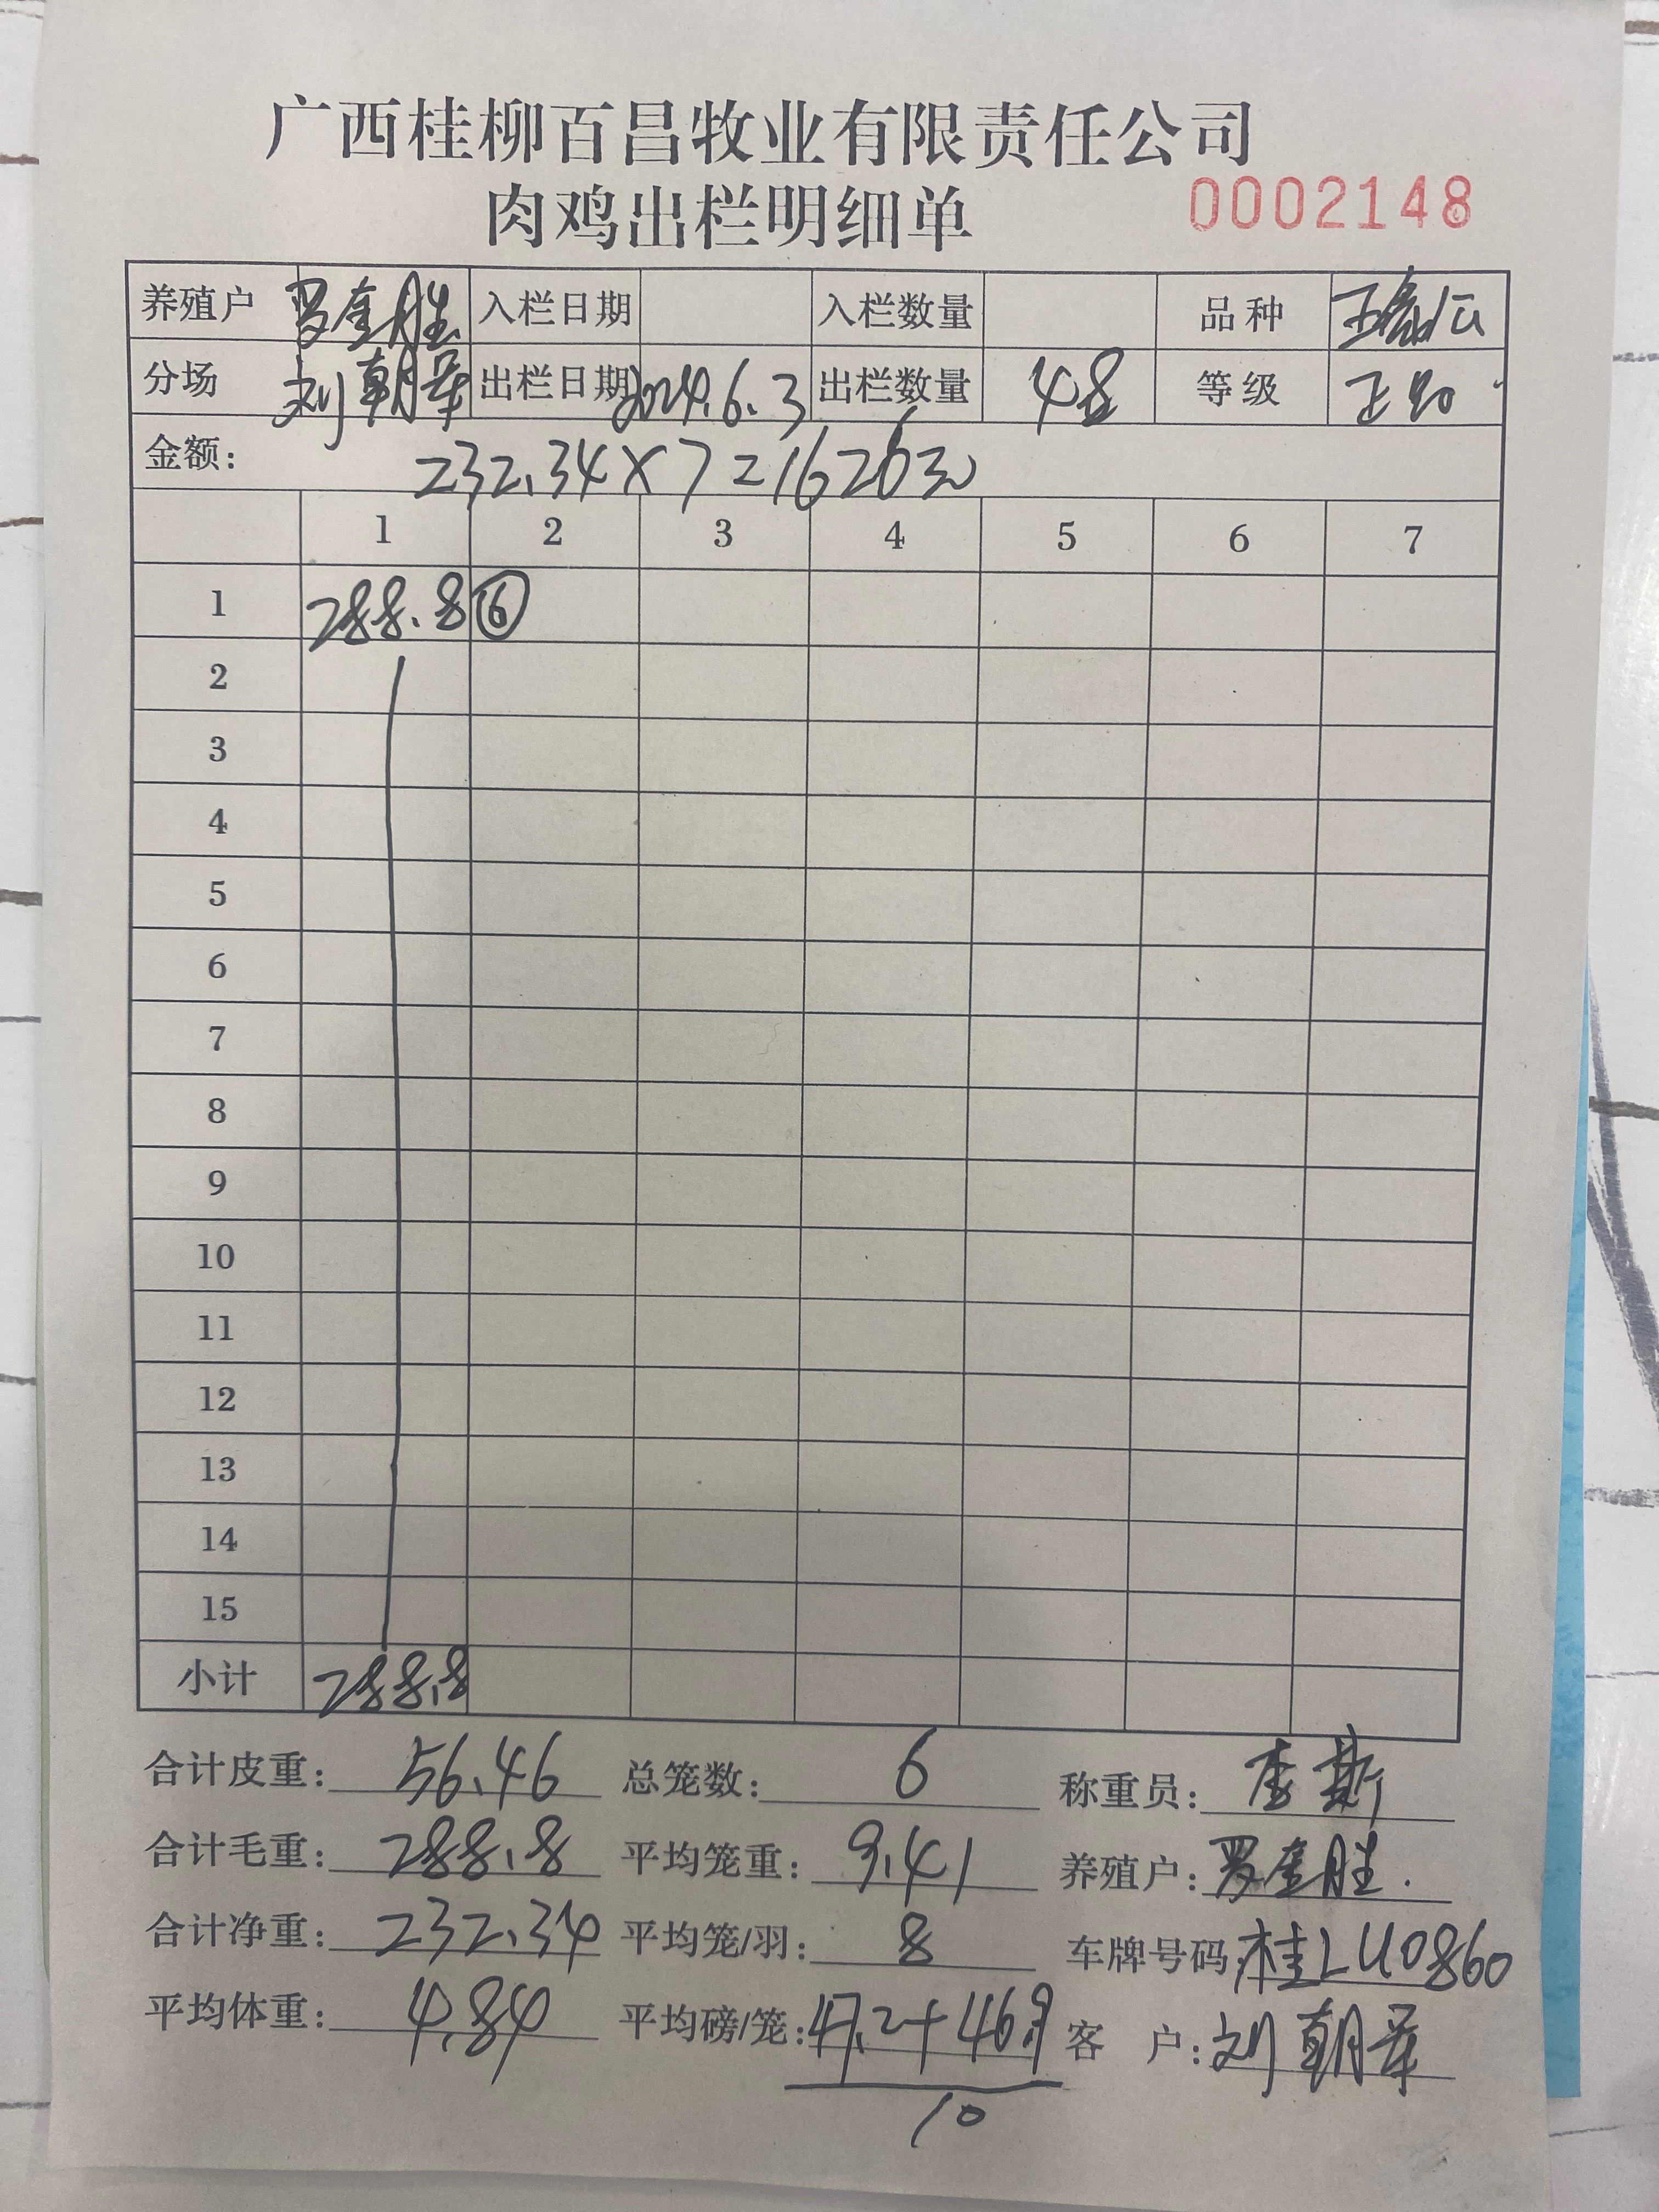 广西桂柳百昌牧业有限责任公司
肉鸡出栏明细单 0002148
养殖户 罗奎胜 入栏日期 入栏数量 品种
分场 刘朝军 出栏日期 2024.6.3 出栏数量 48 等级 正品
金额: 232.34×7=1626元
1 2 3 4 5 6 7
1 288.8 ⑥
2
3
4
5
6
7
8
9
10
11
12
13
14
15
小计 288.8
合计皮重: 56.46 总笼数: 6 称重员: 李斯
合计毛重: 288.8 平均笼重: 9.41 养殖户: 罗奎胜.
合计净重: 232.34 平均笼/羽: 8 车牌号码 桂LU0860
平均体重: 4.84 平均磅/笼: 47.2+46.9 客 户: 刘朝军
10